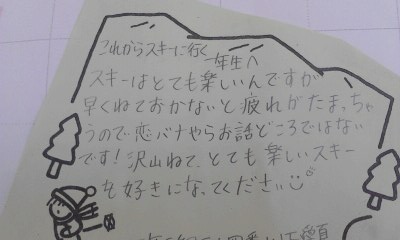 これからスキーに行く
一年生へ
スキーはとても楽しいんですが
早くねておかないと疲れがたまっちゃ
うので恋バナやらお話どころではない
です！沢山ねて、とても楽しいスキー
を好きになってください